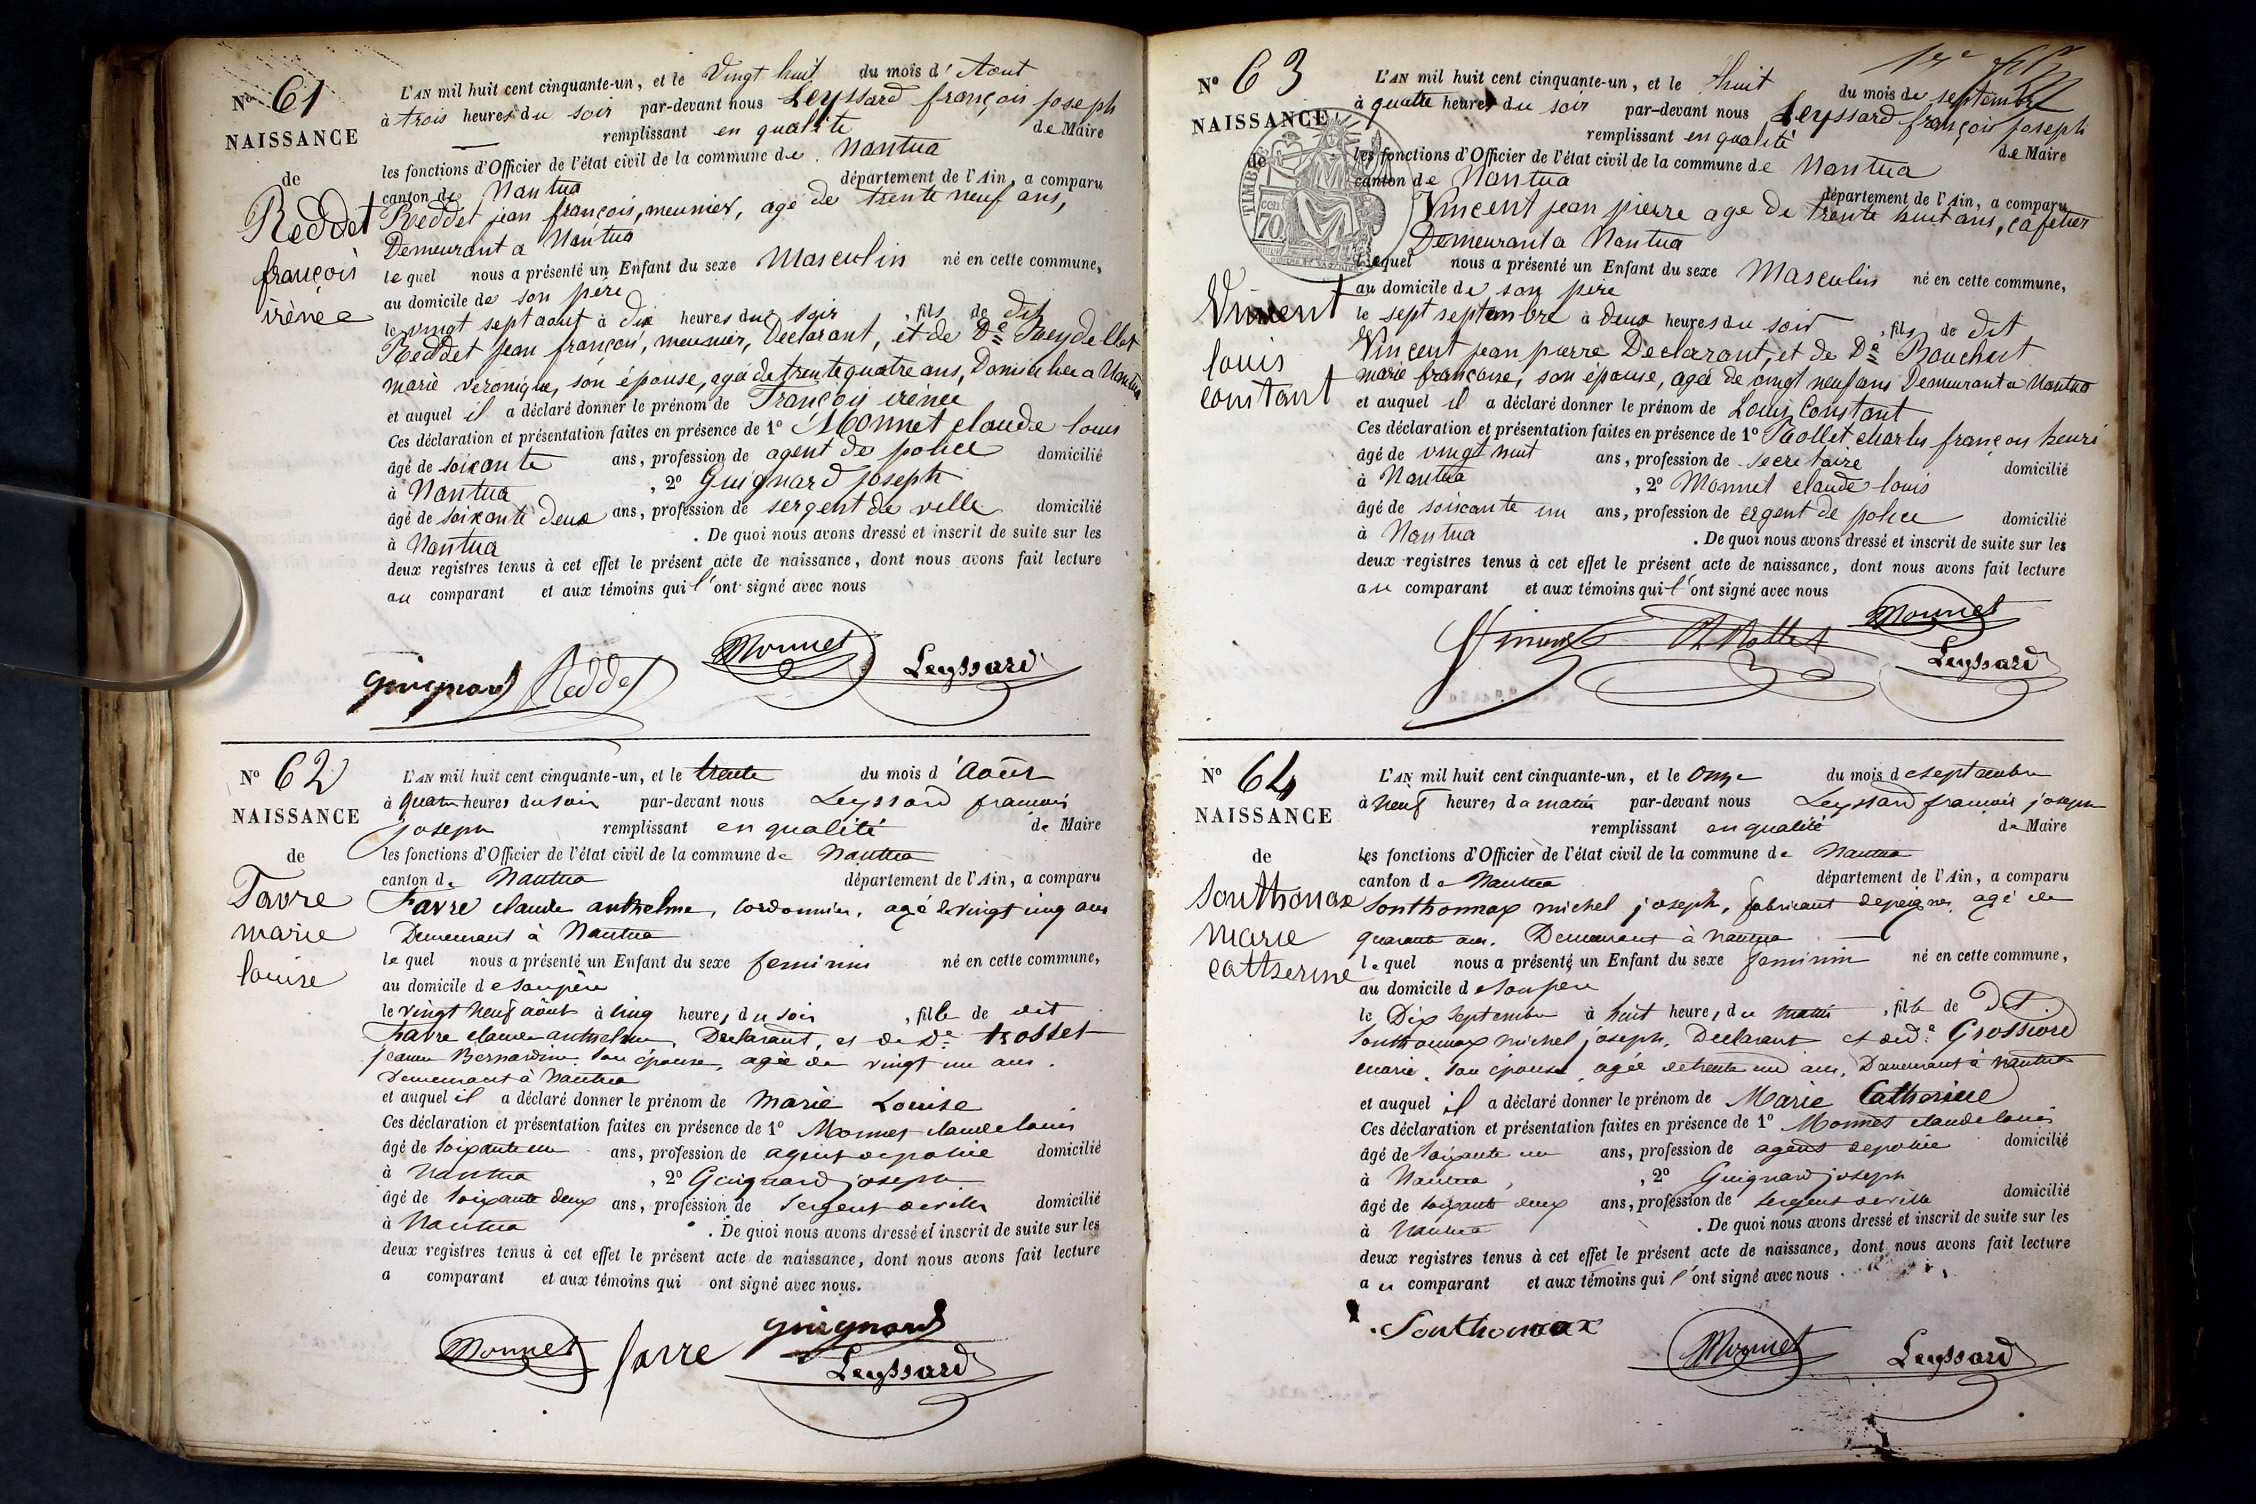 N° 61
NAISSANCE
de
Reddet
françois
irénée
L'AN mil huit cent cinquante-un, et le Vingt huit du mois d'Aout
à trois heures du soir par-devant nous Leyssard françois joseph
remplissant en qualité de Maire
les fonctions d'Officier de l'état civil de la commune de Nantua
canton de Nantua département de l'Ain, a comparu
Reddet jean françois, meunier, agé de trente neuf ans,
Demeurant a Nantua
lequel nous a présenté un Enfant du sexe Masculin né en cette commune,
au domicile de son père
le vingt sept aout à dix heures du soir, fils de dit
Reddet jean françois, meunier, Declarant, et de De
marie véronique, son épouse, agée de trente quatre ans, Domiciliée a Nantua
et auquel il a déclaré donner le prénom de François irénée
Ces déclaration et présentation faites en présence de 1° Monnet claude louis
âgé de soixante ans, profession de agent de police domicilié
à Nantua, 2° Guignard joseph
âgé de soixante deux ans, profession de sergent de ville domicilié
à Nantua. De quoi nous avons dressé et inscrit de suite sur les
deux registres tenus à cet effet le présent acte de naissance, dont nous avons fait lecture
au comparant et aux témoins qui l'ont signé avec nous
guignard Reddet Monnet Leyssard
N° 62
NAISSANCE
de
Favre
marie
louise
L'AN mil huit cent cinquante-un, et le trente du mois d'Août
à quatre heures du soir par-devant nous Leyssard francois
joseph remplissant en qualité de Maire
les fonctions d'Officier de l'état civil de la commune de Nantua
canton de Nantua département de l'Ain, a comparu
Favre claude anthelme, cordonnier, agé de vingt cinq ans
Demeurant à Nantua
lequel nous a présenté un Enfant du sexe feminin né en cette commune,
au domicile de son père
le vingt neuf août à cinq heures du soir, fille de dit
Favre claude anthelme, Declarant, et de De Rosset
jeanne Bernardine son épouse, agée de vingt un ans.
Demeurant à Nantua
et auquel il a déclaré donner le prénom de Marie Louise
Ces déclaration et présentation faites en présence de 1° Monnet claude louis
âgé de soixante un ans, profession de agent de police domicilié
à Nantua, 2° Guignard joseph
âgé de soixante deux ans, profession de sergent de ville domicilié
à Nantua. De quoi nous avons dressé et inscrit de suite sur les
deux registres tenus à cet effet le présent acte de naissance, dont nous avons fait lecture
a comparant et aux témoins qui ont signé avec nous.
Monnet favre guignard
Leyssard
N° 63
NAISSANCE
de
TIMBRE
70 cen
Vincent
louis
constant
L'AN mil huit cent cinquante-un, et le huit du mois de septembre
à quatre heures du soir par-devant nous Leyssard françois joseph
remplissant en qualité de Maire
les fonctions d'Officier de l'état civil de la commune de Nantua
canton de Nantua département de l'Ain, a comparu
Vincent jean pierre age de trente huit ans, cafetier
Demeurant a Nantua
lequel nous a présenté un Enfant du sexe Masculin né en cette commune,
au domicile de son père
le sept septembre à deux heures du soir, fils de dit
Vincent jean pierre Declarant, et de De Bouchert
marie francoise, son épouse, agée de vingt neuf ans Demeurant a Nantua
et auquel il a déclaré donner le prénom de Louis Constant
Ces déclaration et présentation faites en présence de 1° charles françois henri
âgé de vingt huit ans, profession de secretaire domicilié
à Nantua, 2° Monnet claude louis
âgé de soixante un ans, profession de agent de police domicilié
à Nantua. De quoi nous avons dressé et inscrit de suite sur les
deux registres tenus à cet effet le présent acte de naissance, dont nous avons fait lecture
au comparant et aux témoins qui l'ont signé avec nous
Vincent Monnet
Leyssard
N° 64
NAISSANCE
de
Sonthonax
Marie
Catherine
L'AN mil huit cent cinquante-un, et le onze du mois de septembre
à neuf heures da matin par-devant nous Leyssard francois joseph
remplissant en qualité de Maire
les fonctions d'Officier de l'état civil de la commune de Nantua
canton de Nantua département de l'Ain, a comparu
Sonthonnax michel joseph, fabricant de peignes, agé de
quarante ans. Demeurant à Nantua
lequel nous a présenté un Enfant du sexe feminin né en cette commune,
au domicile de son père
le Dix Septembre à huit heures du matin, fille de Dit
Sonthonnax michel joseph, Declarant et de De Grossiord
marie, son épouse, agée de trente un ans, Demeurant à Nantua
et auquel il a déclaré donner le prénom de Marie Catherine
Ces déclaration et présentation faites en présence de 1° Monnet claude louis
âgé de soixante un ans, profession de agent de police domicilié
à Nantua, 2° Guignard joseph
âgé de soixante deux ans, profession de sergent de ville domicilié
à Nantua. De quoi nous avons dressé et inscrit de suite sur les
deux registres tenus à cet effet le présent acte de naissance, dont nous avons fait lecture
au comparant et aux témoins qui l'ont signé avec nous.
Sonthonnax Monnet Leyssard